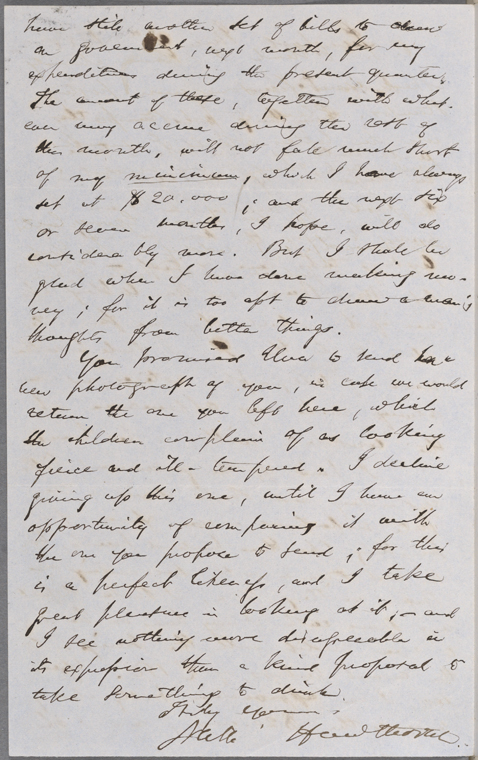 have still another set of bills to draw
on government, next month, for my
expenditures during the present quarter.
The amount of these, together with what-
ever may accrue during the rest of
this month, will not fall much short
of my minimum, which I have always
set at $20,000; and the next six
or seven months, I hope, will do
considerably more. But I shall be
glad when I have done making mo-
ney; for it is too apt to draw a man's
thoughts from better things.
You promised Una to send her a
new photograph of you, in case we would
return the one you left here, which
the children complain of as looking
fierce and ill-tempered. I decline
giving up this one, until I have an
opportunity of comparing it with
the one you propose to send; for this
is a perfect likeness, and I take
great pleasure in looking at it;—and
I see nothing more disagreeable in
its expression than a kind proposal to
take something to drink.
Truly yours
Nath Hawthorne.